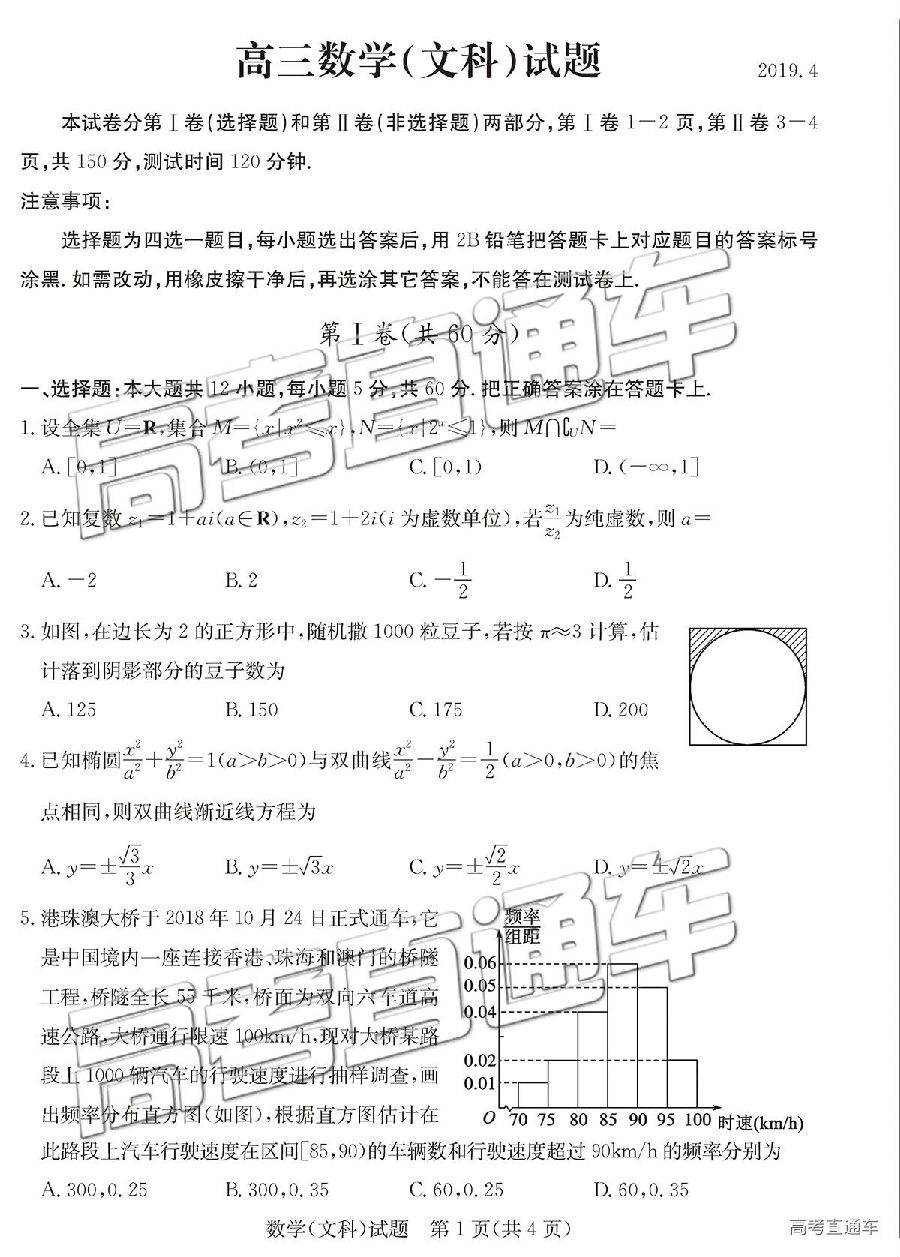 高三数学(文科)试题
2019.4
本试卷分第Ⅰ卷(选择题)和第Ⅱ卷(非选择题)两部分,第Ⅰ卷1—2页,第Ⅱ卷3—4
页,共150分,测试时间120分钟.
注意事项:
选择题为四选一题目,每小题选出答案后,用2B铅笔把答题卡上对应题目的答案标号
涂黑.如需改动,用橡皮擦干净后,再选涂其它答案,不能答在测试卷上.
第Ⅰ卷(共60分)
一、选择题:本大题共12小题,每小题5分,共60分.把正确答案涂在答题卡上.
1. 设全集U=R,集合M={x|x²≤x},N={x|2ˣ≤1},则M∩∁UN=
A. [0,1] B. (0,1] C. [0,1) D. (-∞,1]
2. 已知复数z₁=1+ai(a∈R),z₂=1+2i(i为虚数单位),若z₁/z₂为纯虚数,则a=
A. -2 B. 2 C. -1/2 D. 1/2
3. 如图,在边长为2的正方形中,随机撒1000粒豆子,若按π≈3计算,估
计落到阴影部分的豆子数为
A. 125 B. 150 C. 175 D. 200
4. 已知椭圆x²/a²+y²/b²=1(a>b>0)与双曲线x²/a²-y²/b²=1/2(a>0,b>0)的焦
点相同,则双曲线渐近线方程为
A. y=±√3/3x B. y=±√3x C. y=±√2/2x D. y=±√2x
5. 港珠澳大桥于2018年10月24日正式通车,它
是中国境内一座连接香港、珠海和澳门的桥隧
工程,桥隧全长55千米,桥面为双向六车道高
速公路,大桥通行限速100km/h,现对大桥某路
段上1000辆汽车的行驶速度进行抽样调查,画
出频率分布直方图(如图),根据直方图估计在
此路段上汽车行驶速度在区间[85,90)的车辆数和行驶速度超过90km/h的频率分别为
频率
组距
0.06
0.05
0.04
0.02
0.01
O 70 75 80 85 90 95 100 时速(km/h)
A. 300,0.25 B. 300,0.35 C. 60,0.25 D. 60,0.35
数学(文科)试题 第1页(共4页)
高考直通车
高考直通车
高考直通车